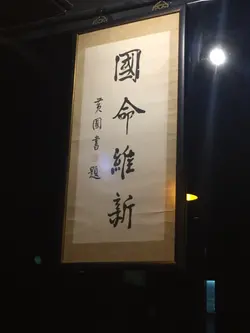 國命維新
黃國書題